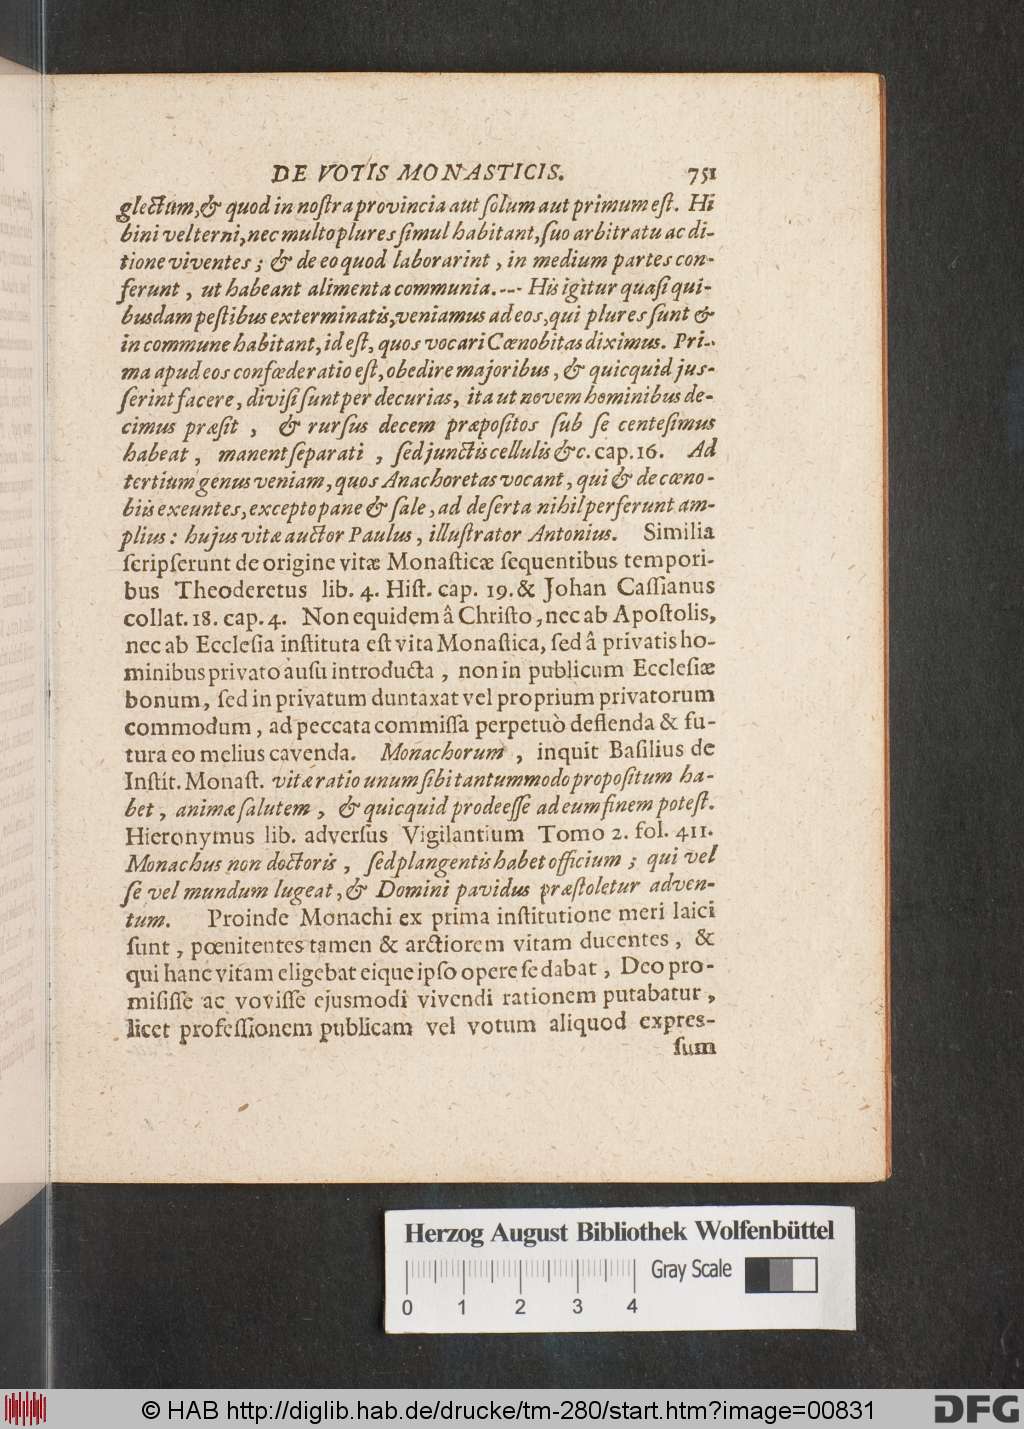 DE VOTIS MONASTICIS. 751
glectum, & quod in noſtra provincia aut ſolum aut primum eſt. Hi
bini vel terni, nec multo plures ſimul habitant, ſuo arbitratu ac di-
tione viventes; & de eo quod laborarint, in medium partes con-
ferunt, ut habeant alimenta communia. --- His igitur quaſi qui-
busdam peſtibus exterminatis, veniamus ad eos, qui plures ſunt &
in commune habitant, id eſt, quos vocari Cœnobitas diximus. Pri-
ma apud eos confœderatio eſt, obedire majoribus, & quicquid juſ-
ſerint facere, diviſi ſunt per decurias, ita ut novem hominibus de-
cimus præſit, & rurſus decem præpoſitos ſub ſe centeſimus
habeat, manent ſeparati, ſed junctis cellulis &c. cap. 16. Ad
tertium genus veniam, quos Anachoretas vocant, qui & de cœno-
biis exeuntes, excepto pane & ſale, ad deſerta nihil perferunt am-
plius: hujus vitæ auctor Paulus, illuſtrator Antonius. Similia
ſcripſerunt de origine vitæ Monaſticæ ſequentibus tempori-
bus Theoderetus lib. 4. Hiſt. cap. 19. & Johan Caſſianus
collat. 18. cap. 4. Non equidem â Chriſto, nec ab Apoſtolis,
nec ab Eccleſia inſtituta eſt vita Monaſtica, ſed â privatis ho-
minibus privato auſu introducta, non in publicum Eccleſiæ
bonum, ſed in privatum duntaxat vel proprium privatorum
commodum, ad peccata commiſſa perpetuò deflenda & fu-
tura eo melius cavenda. Monachorum, inquit Baſilius de
Inſtit. Monaſt. vitæ ratio unum ſibi tantummodo propoſitum ha-
bet, animæ ſalutem, & quicquid prodeeſſe ad eum finem poteſt.
Hieronymus lib. adverſus Vigilantium Tomo 2. fol. 411.
Monachus non doctoris, ſed plangentis habet officium; qui vel
ſe vel mundum lugeat, & Domini pavidus præſtoletur adven-
tum. Proinde Monachi ex prima inſtitutione meri laici
ſunt, pœnitentes tamen & arctiorem vitam ducentes, &
qui hanc vitam eligebat eique ipſo opere ſe dabat, Deo pro-
miſiſſe ac voviſſe ejusmodi vivendi rationem putabatur,
licet profeſſionem publicam vel votum aliquod expreſ-
ſum
Herzog August Bibliothek Wolfenbüttel
Gray Scale
0 1 2 3 4
© HAB http://diglib.hab.de/drucke/tm-280/start.htm?image=00831
DFG